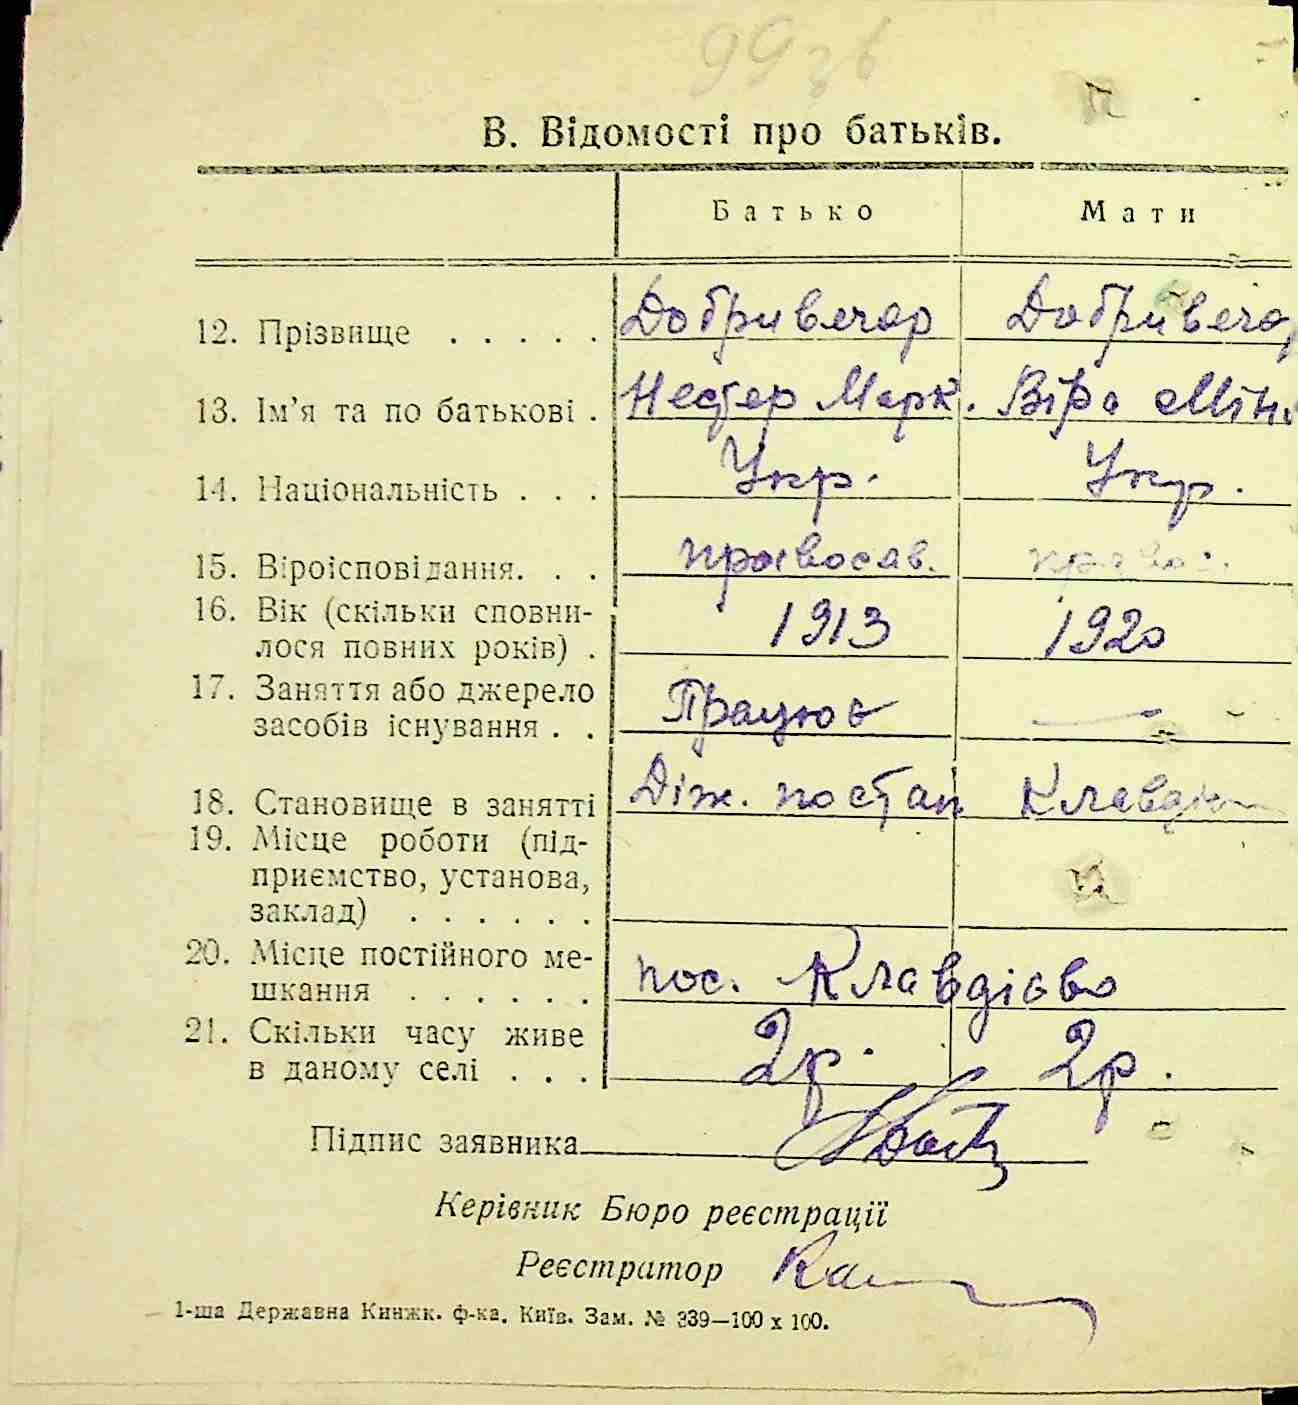 99зв
В. Відомості про батьків.
Батько Мати
12. Прізвище . . . . . Добривечор Добривечор
13. Ім'я та по батькові . Нестер Марк. Віра Мін.
14. Національність . . . Укр. Укр.
15. Віроісповідання. . . православ. правос.
16. Вік (скільки сповни-
лося повних років) . 1913 1920
17. Заняття або джерело
засобів існування . . Працює —
18. Становище в занятті Діж. постан
19. Місце роботи (під-
приємство, установа,
заклад) . . . . . .
20. Місце постійного ме-
шкання . . . . . . пос. Клавдієво
21. Скільки часу живе
в даному селі . . . 2р. 2р.
Підпис заявника
Керівник Бюро реєстрації
Реєстратор
1-ша Державна Книжк. ф-ка. Київ. Зам. № 339—100 х 100.